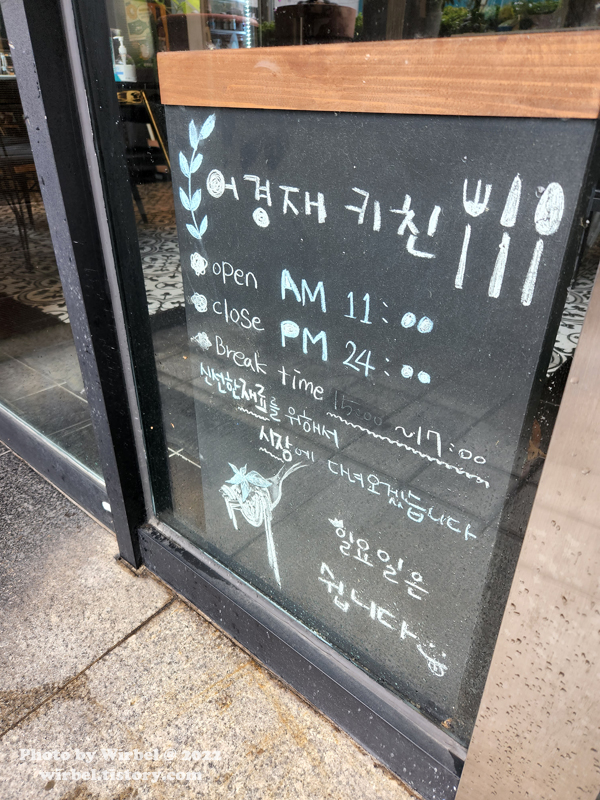 어경재 키친
open AM 11:00
close PM 24:00
Break time 15:00 ~17:00
신선한 재료를 위해서
시장에 다녀오겠습니다
일요일은
쉽니다
Photo by Wirbel © 2022
wirbel.tistory.com